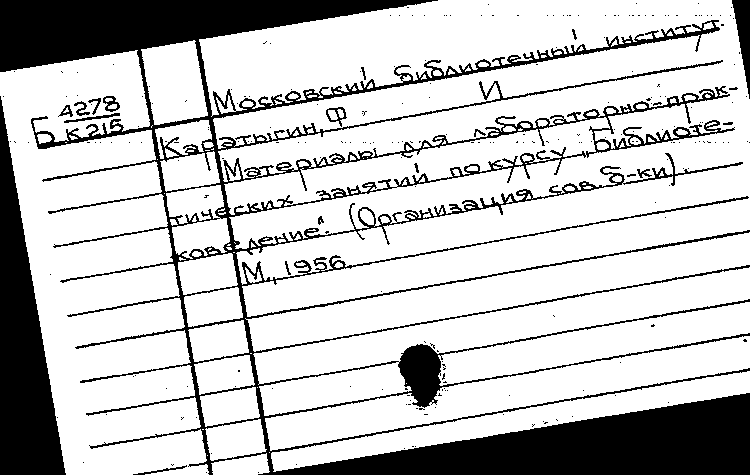 Московский библиотечный институт.
Б 4278
К 215
Каратыгин, Ф И
Материалы для лабораторно-прак-
тических занятий по курсу „Библиоте-
коведение". (Организация сов. б-ки).
М., 1956.